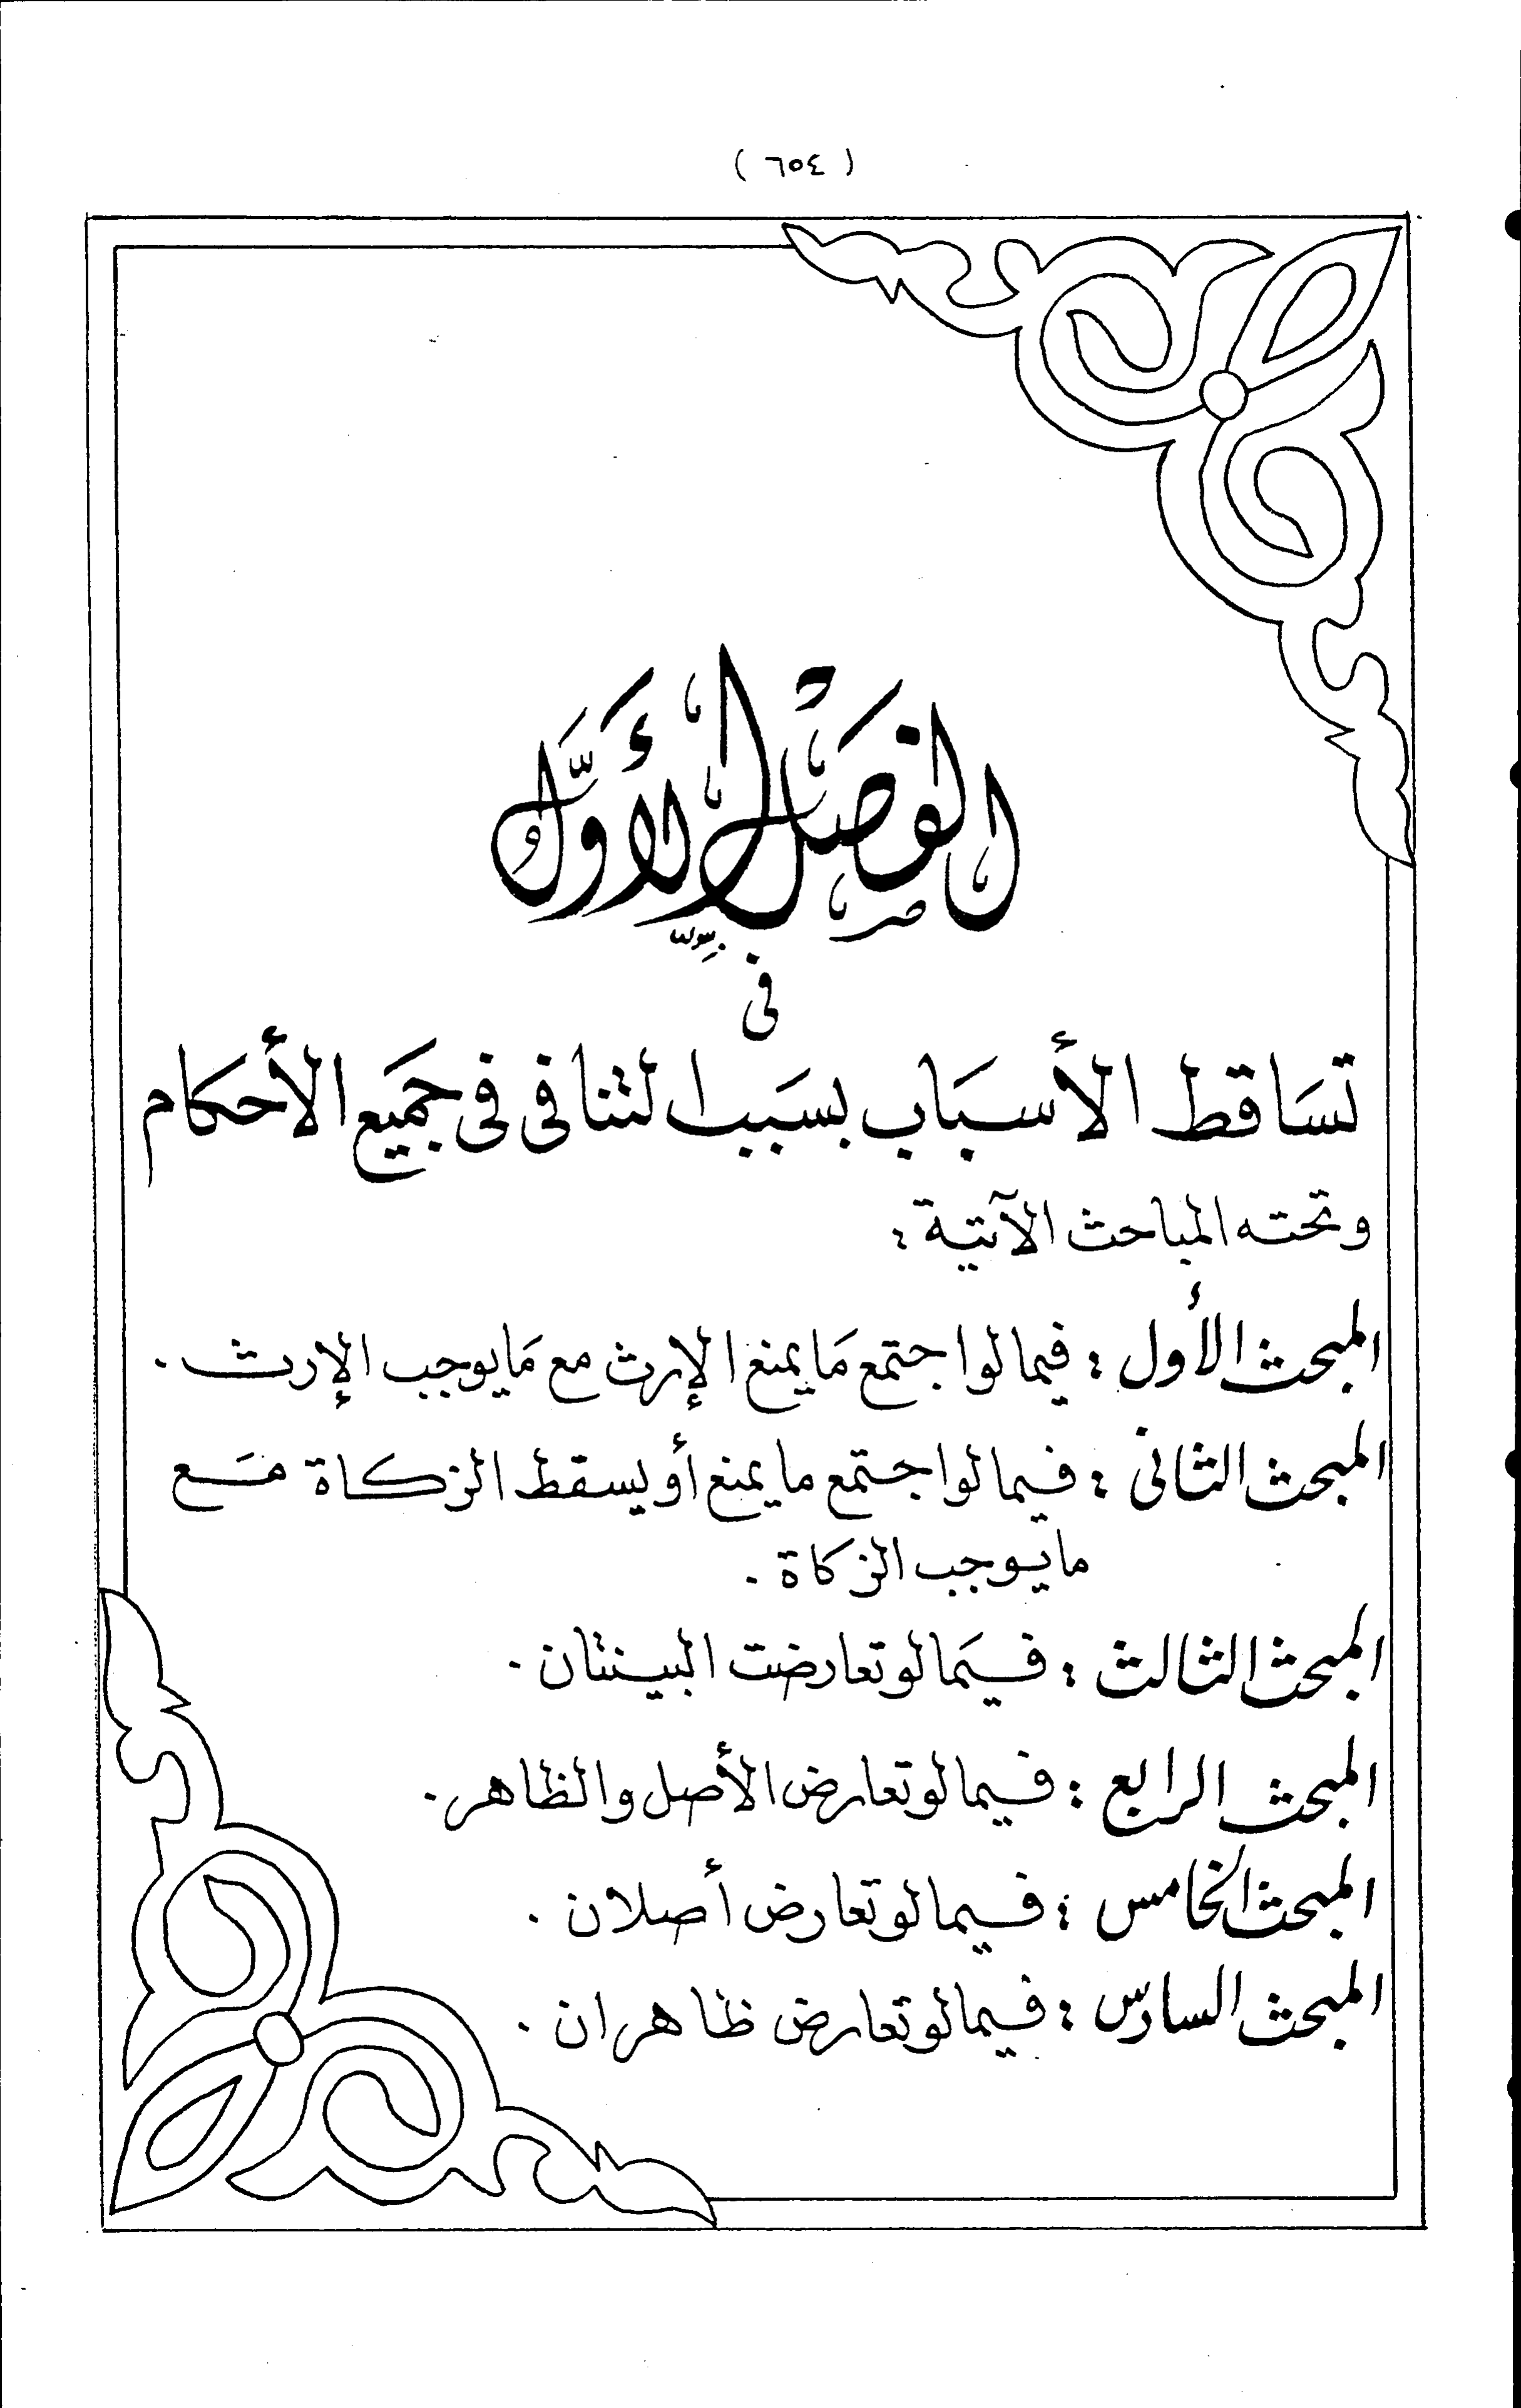 ( ٦٥٤ )
الفَصْل الأَوَّل
فى
تسَاقط الأسبَاب بسَبب التنافى فى جمَيع الأحكام
وتحته المباحث الآتية :
المبحث الأول : فيما لو اجتمع مَا يمنع الإرث مع مَا يوجب الإرث .
المبحث الثانى : فيما لو اجتمع ما يمنع أو يسقط الزكاة مَع
ما يوجب الزكاة .
المبحث الثالث : فيمَا لو تعارضت البينتان .
المبحث الرابع : فيما لو تعارض الأصل والظاهر .
المبحث الخامس : فيما لو تعارض أصلان .
المبحث السادس : فيما لو تعارض ظاهران .